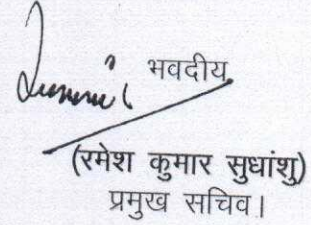 भवदीय
(रमेश कुमार सुधांशु)
प्रमुख सचिव।